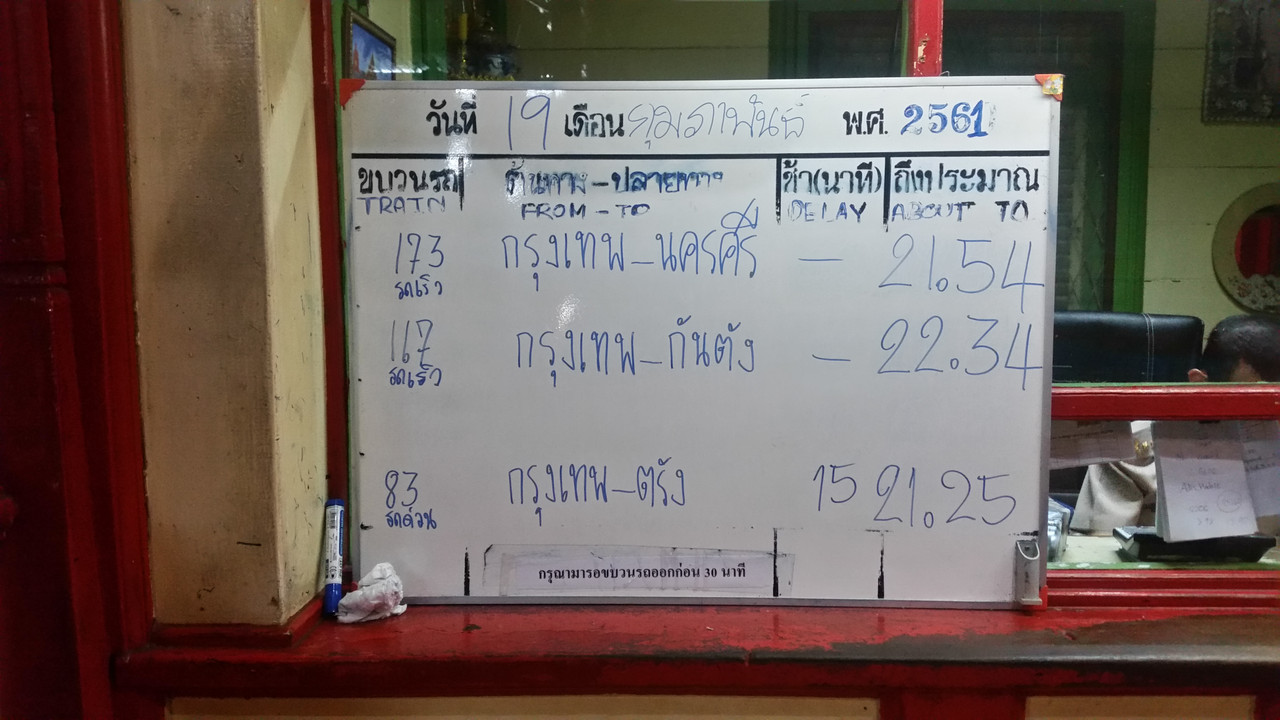 วันที่ 19 เดือน กุมภาพันธ์ พ.ศ. 2561
ขบวนรถ ต้นทาง-ปลายทาง ช้า(นาที) ถึงประมาณ
TRAIN FROM-TO DELAY ABOUT TO
173 กรุงเทพ-นครศรี - 21.54
รถเร็ว
167 กรุงเทพ-กันตัง - 22.34
รถเร็ว
83 กรุงเทพ-ตรัง 15 21.25
รถด่วน
กรุณามารอขบวนรถออกก่อน 30 นาที